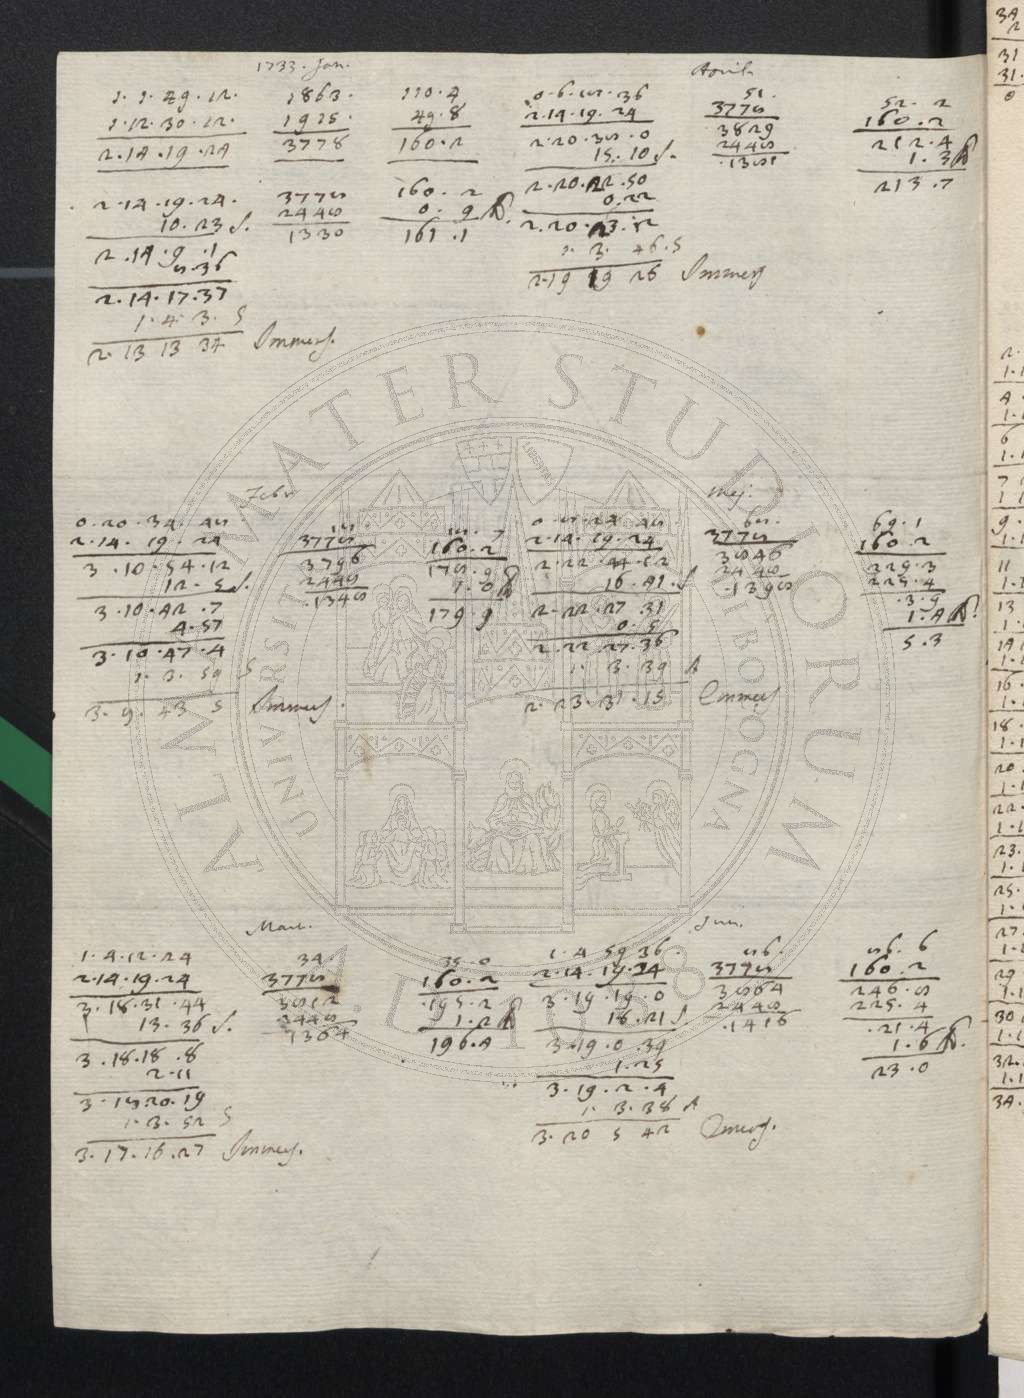 1733. Jan.
1. 1. 49. 12.
1. 12. 30. 12.
2. 14. 19. 24
1863.
1915.
3778
110. 4
49. 8
160. 2
2. 14. 19. 24.
10. 23 S.
2. 14. 9. 1
5. 36
2. 14. 17. 37
1. 4. 3. S
2. 13 13 34 Immers.
3775
2445
1330
160. 2
0. 9 A.
161. 1
April.
0. 6. 15. 36
2. 14. 19. 24
2. 20. 35. 0
15. 10 S.
2. 20. 22. 50
0. 22
2. 20. 23. 12
1. 3. 46. S
2. 19 19 26 Immers
51.
3775
3829
2445
1351
52. 2
160. 2
212. 4
1. 3 A
213. 7
Febr.
0. 20. 34. 45
2. 14. 19. 24
3. 10. 54. 12
12. 5 S.
3. 10. 42. 7
4. 57
3. 10. 47. 4
1. 3. 59 S
3. 9. 43 5 Immers.
15.
3775
3796
2445
1345
15. 7
160. 2
175. 9
1. 0 A
179. 9
Maj.
0. 5. 24. 45
2. 14. 19. 24
2. 22. 44. 12
16. 41. S
2. 22. 27 31
0. 5
2. 22. 27. 36
1. 3. 39 A
2. 23. 31. 15 Emmers
65.
3775
3546
2445
1395
69. 1
160. 2
229. 3
225. 4
3. 9
1. 4 A.
5. 3
Mart.
1. 4. 12. 24
2. 14. 19. 24
3. 18. 31. 44
13. 36 S.
3. 18. 18. 8
2. 11
3. 18 20. 19
1. 3. 52 S
3. 17. 16. 27 Immers.
34.
3775
3512
2445
1364
35. 0
160. 2
195. 2
1. 2 A
196. 4
Jun.
1. 4 59 36.
2. 14. 19. 24
3. 19. 19. 0
18. 21 S
3. 19. 0. 39
1. 25
3. 19. 2. 4
1. 3. 38 A
3. 20 5 42 Emers.
56.
3775
3564
2445
1416
56. 6
160. 2
246. 5
225. 4
21. 4
1. 6 A.
23. 0
ALMA MATER STUDIORUM
UNIVERSITÀ DI BOLOGNA
A.D. 1088